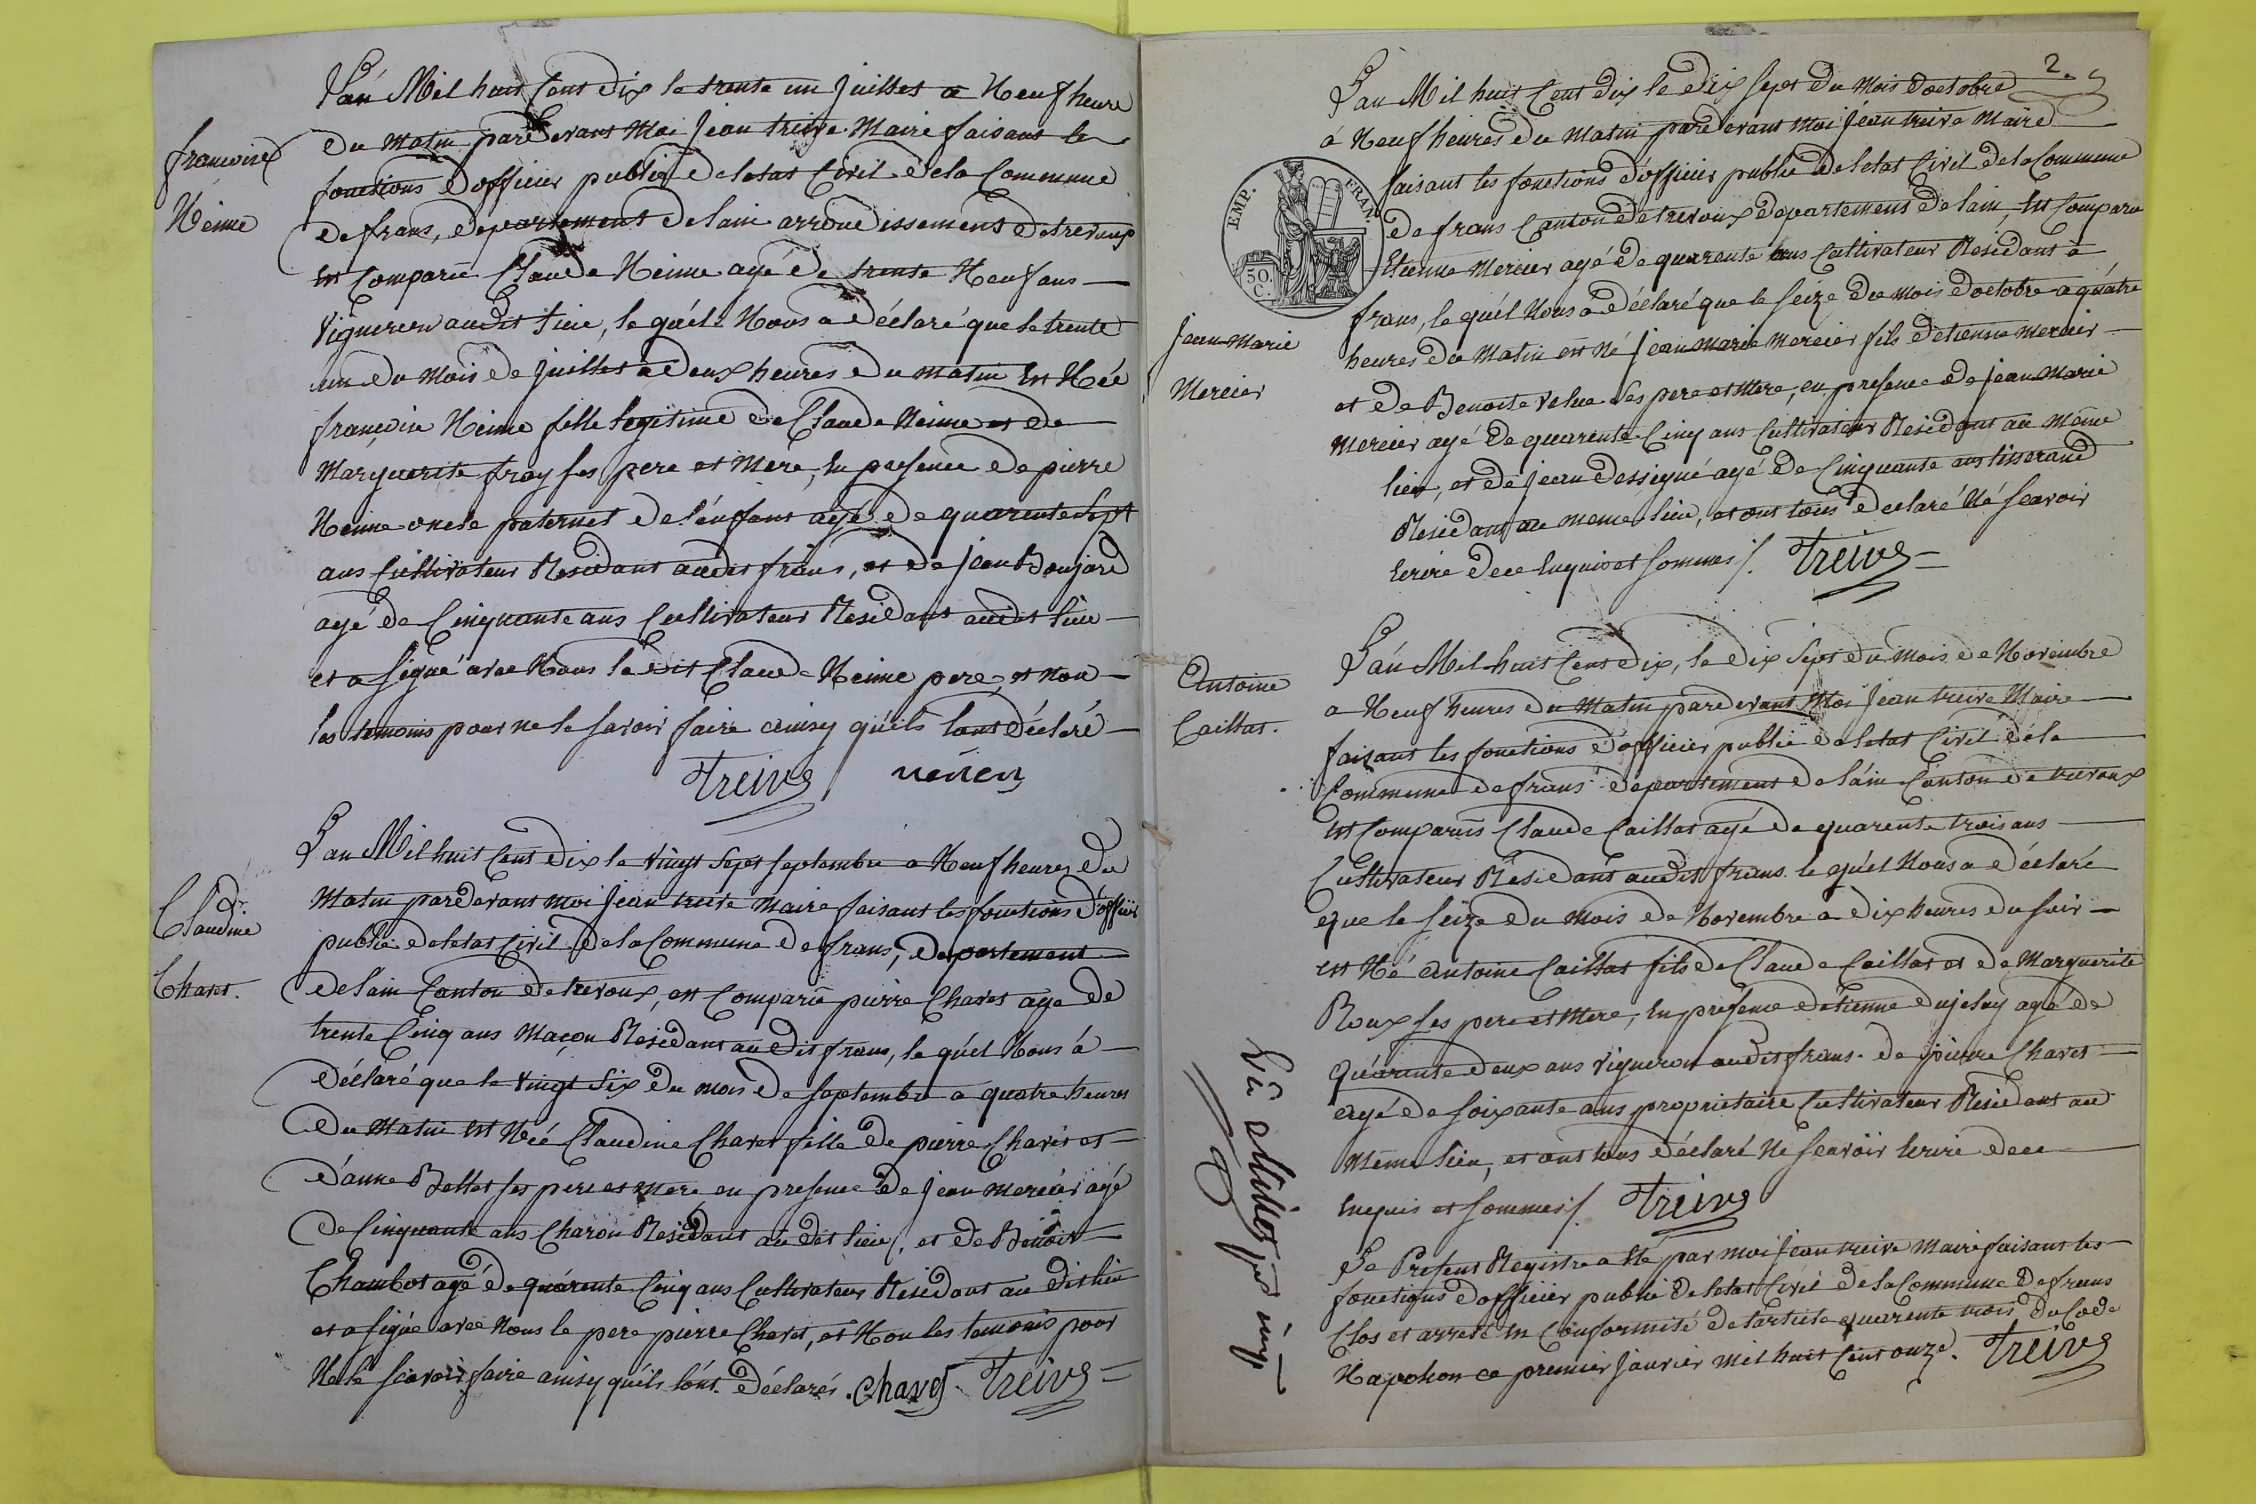 francoise
Neime
L'an Mil huit Cent Dix le trente un juillet a Neuf heure
Du Matin pardevant Moi jean treive Maire faisant les
fonctions d'officier public de letat Civil de la Commune
De frans, Departement De lain arrondissement de trevoux
est Comparu Claude Neime agé De trente Neuf ans
Vigneron audit lieu, le quel Nous a Déclaré que le trente
un du Mois de juillet a Deux heures Du matin est Née
françoise Neime fille legitime De Claude Neime et De
Marguerite fray ses pere et Mere, en presence De pierre
Neime oncle paternel De l'enfant agé De quarente sept
ans Cultivateur Residant audit frans, et De jean Boujard
agé De Cinquante ans Cultivateur Residant audit lieu
et a signé avec Nous le dit Claude Neime pere, et non
les temoins pour ne le savoir faire ainsy qu'ils lont Déclaré
Treive
Claudine
Chavet.
L'an Mil huit Cent Dix le vingt sept septembre a Neuf heures Du
Matin pardevant moi jean treive Maire faisant les fonctions d'officier
public de letat Civil De la Commune De frans, Departement
De lain Canton De trevoux, est Comparu pierre Chavet age De
trente Cinq ans Maçon Residant au Dit frans, le quel Nous à
Déclaré que le vingt Six Du mois De septembre a quatre heures
Du Matin est Née Claudine Chavet fille De pierre Chavet et
D'anne Bellet ses pere et Mere en presence De jean mercier agé
De Cinquante ans Charon Residant au dit lieu, et De Benoit
Chambot agé De quarente Cinq ans Cultivateur Residant au Dit lieu
et a signé avec Nous le pere pierre Chavet, et Non les temoins pour
Ne le scavoir faire ainsy quils lont Déclarés. Chavet Treive
2.
L'an Mil huit Cent Dix le Dix Sept Du Mois doctobre
à Neuf heures Du Matin pardevant Moi jean treive Maire
EMP. FRAN.
50 C.
faisant les fonctions d'officier public de letat Civil De la Commune
De frans Canton De trevoux Departement De lain, est Comparu
Etienne Mercier agé De quarante ans Cultivateur Residant à
frans, le quel Nous a Déclaré que le seize Du mois doctobre a quatre
jean Marie
Mercier
heures Du Matin est Né jean Marie Mercier fils Detienne Mercier
et De Benoite Velue ses pere et Mere, en presence De jean Marie
Mercier agé De quarente Cinq ans Cultivateur Residant au Même
lieu, et De jean Dessigné agé De Cinquante ans tisserand
Residant au meme lieu, et ont tous Declaré Né scavoir
Ecrire De ce Enquis et sommés /. Treive
Antoine
Caillat.
L'an Mil huit Cent Dix, le Dix Sept Du mois De Novembre
a Neuf heures Du Matin pardevant Moi jean treive Maire
faisant les fonctions d'officier public De letat Civil De la
Commune De frans Departement De lain Canton De trevoux
est Comparus Claude Caillat agé De quarente trois ans
Cultivateur Residant audit frans. le quel Nous a Déclaré
que le seize Du Mois De Novembre a Dix heures Du soir
est Né Antoine Caillat fils De Claude Caillat et De Marguerite
Roux ses pere et Mere, En presence Detienne Dujelay agé De
Quarente Deux ans Vigneron audit frans. De pierre Chavet
agé De soixante ans proprietaire Cultivateur Residant au
Meme lieu, et ont tous Déclaré Ne scavoir Ecrire De ce
Enquis et sommés /. Treive
Le Present Registre a Ete par Moi jean treive Maire faisant les
fonctions d'officier public De letat Civil De la Commune De frans
Clos et arreté En Conformité De larticle quarente trois Du Code
Napoleon ce premier janvier Mil huit Cent onze. Treive